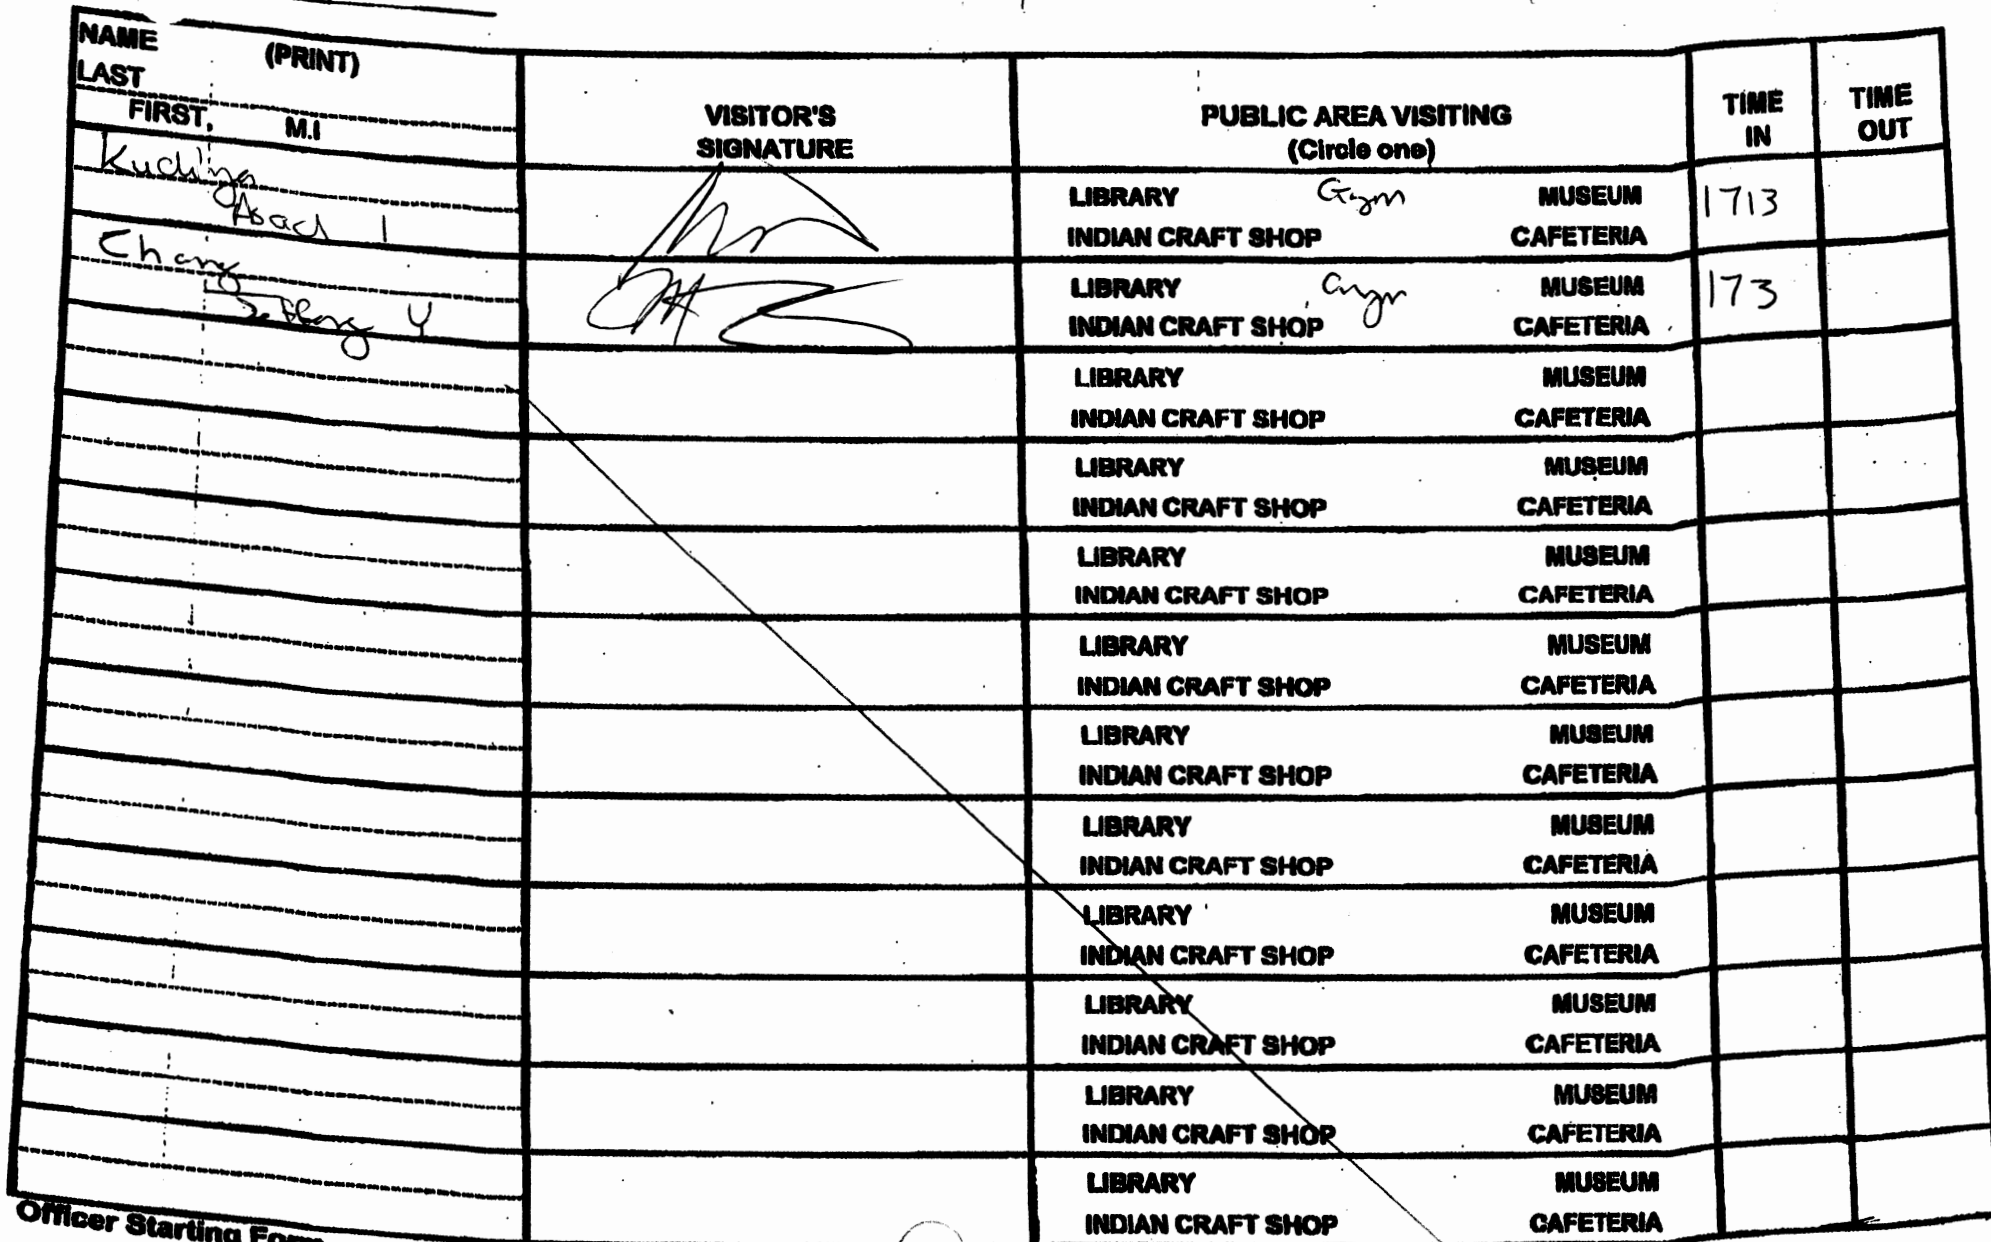 NAME (PRINT)
LAST
FIRST, M.I
VISITOR'S
SIGNATURE
PUBLIC AREA VISITING
(Circle one)
TIME
IN
TIME
OUT
LIBRARY Gym MUSEUM
1713
INDIAN CRAFT SHOP CAFETERIA
Asad I
Chang
LIBRARY Gym MUSEUM
173
INDIAN CRAFT SHOP CAFETERIA
Y
LIBRARY MUSEUM
INDIAN CRAFT SHOP CAFETERIA
LIBRARY MUSEUM
INDIAN CRAFT SHOP CAFETERIA
LIBRARY MUSEUM
INDIAN CRAFT SHOP CAFETERIA
LIBRARY MUSEUM
INDIAN CRAFT SHOP CAFETERIA
LIBRARY MUSEUM
INDIAN CRAFT SHOP CAFETERIA
LIBRARY MUSEUM
INDIAN CRAFT SHOP CAFETERIA
LIBRARY MUSEUM
INDIAN CRAFT SHOP CAFETERIA
LIBRARY MUSEUM
INDIAN CRAFT SHOP CAFETERIA
LIBRARY MUSEUM
INDIAN CRAFT SHOP CAFETERIA
LIBRARY MUSEUM
INDIAN CRAFT SHOP CAFETERIA
Officer Starting Form